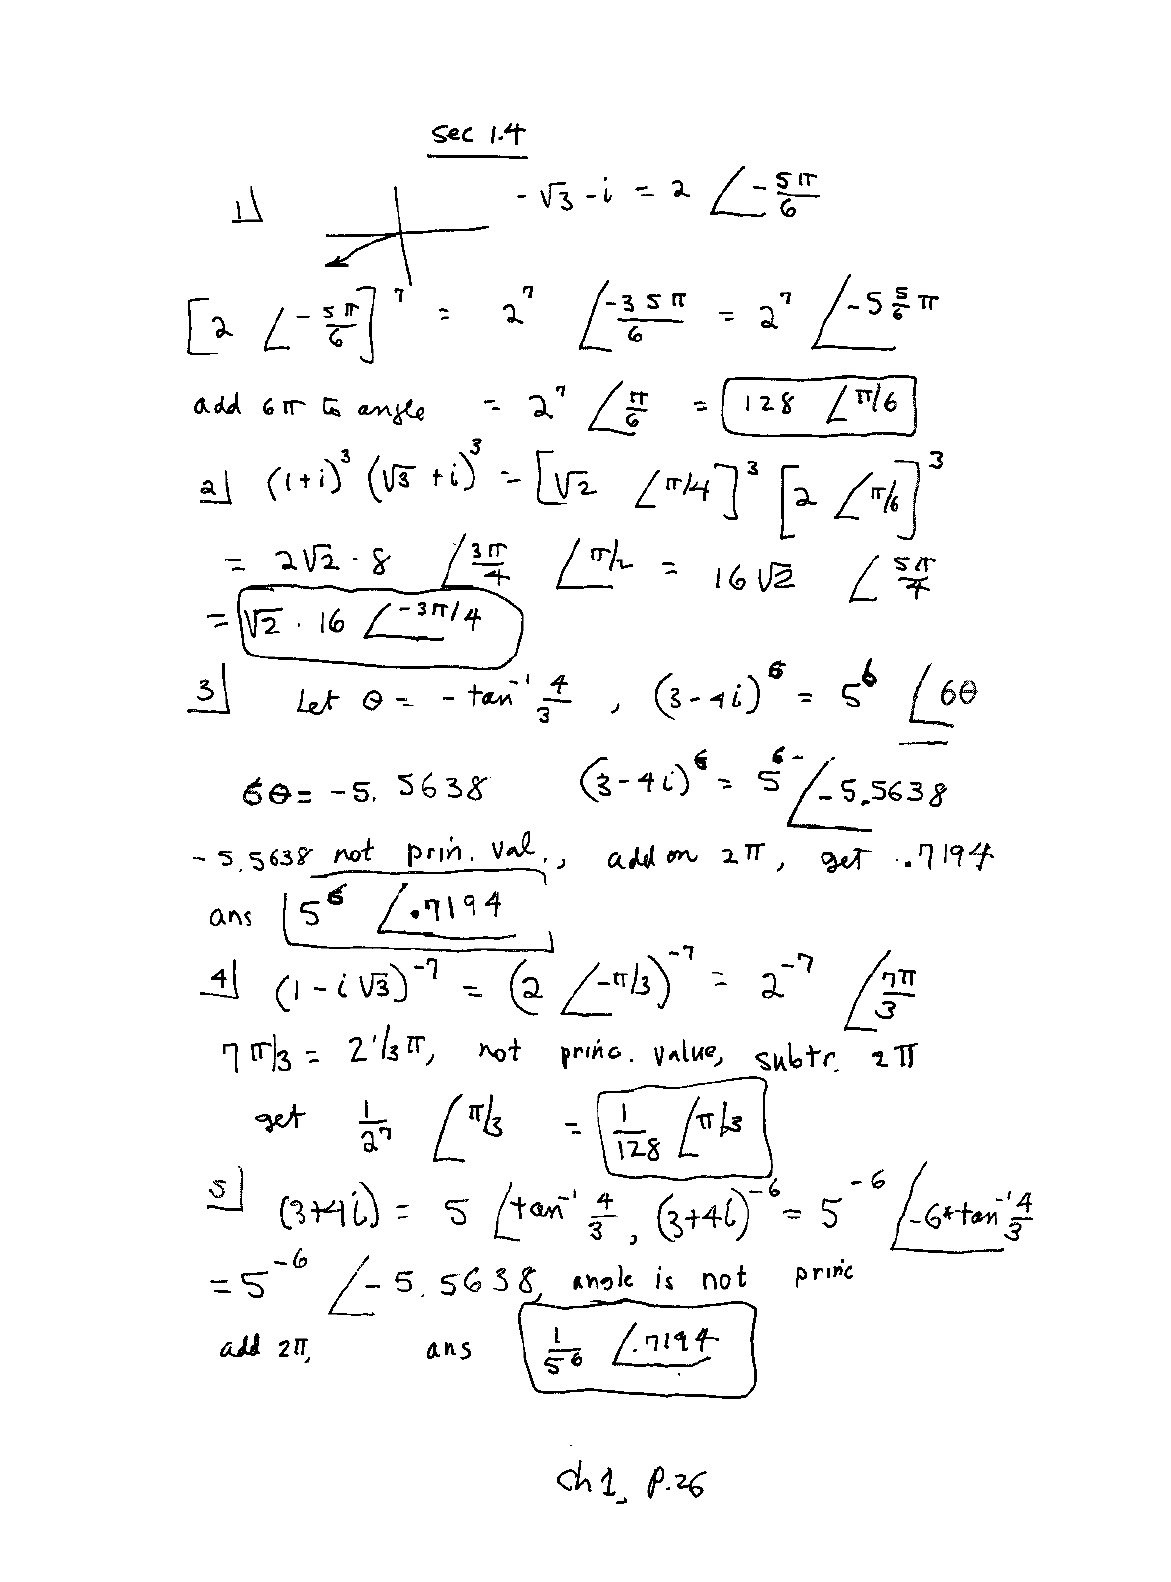 sec 1.4
1] -√3 - i = 2 ∠-5π/6
[2 ∠-5π/6]^7 = 2^7 ∠-35π/6 = 2^7 ∠-5 5/6 π
add 6π to angle = 2^7 ∠π/6 = 128 ∠π/6
2] (1+i)^3 (√3 +i)^3 = [√2 ∠π/4]^3 [2 ∠π/6]^3
= 2√2 · 8 ∠3π/4 ∠π/2 = 16√2 ∠5π/4
= √2 · 16 ∠-3π/4
3] Let θ = - tan^-1 4/3 , (3-4i)^6 = 5^6 ∠6θ
6θ = -5.5638 (3-4i)^6 = 5^6 ∠-5.5638
-5.5638 not prin. val., add on 2π, get .7194
ans 5^6 ∠.7194
4] (1-i√3)^-7 = (2 ∠-π/3)^-7 = 2^-7 ∠7π/3
7π/3 = 2 1/3 π, not princ. value, subtr. 2π
get 1/2^7 ∠π/3 = 1/128 ∠π/3
5] (3+4i) = 5 ∠tan^-1 4/3 , (3+4i)^-6 = 5^-6 ∠-6*tan^-1 4/3
= 5^-6 ∠-5.5638, angle is not princ
add 2π, ans 1/5^6 ∠.7194
Ch 1, p.26